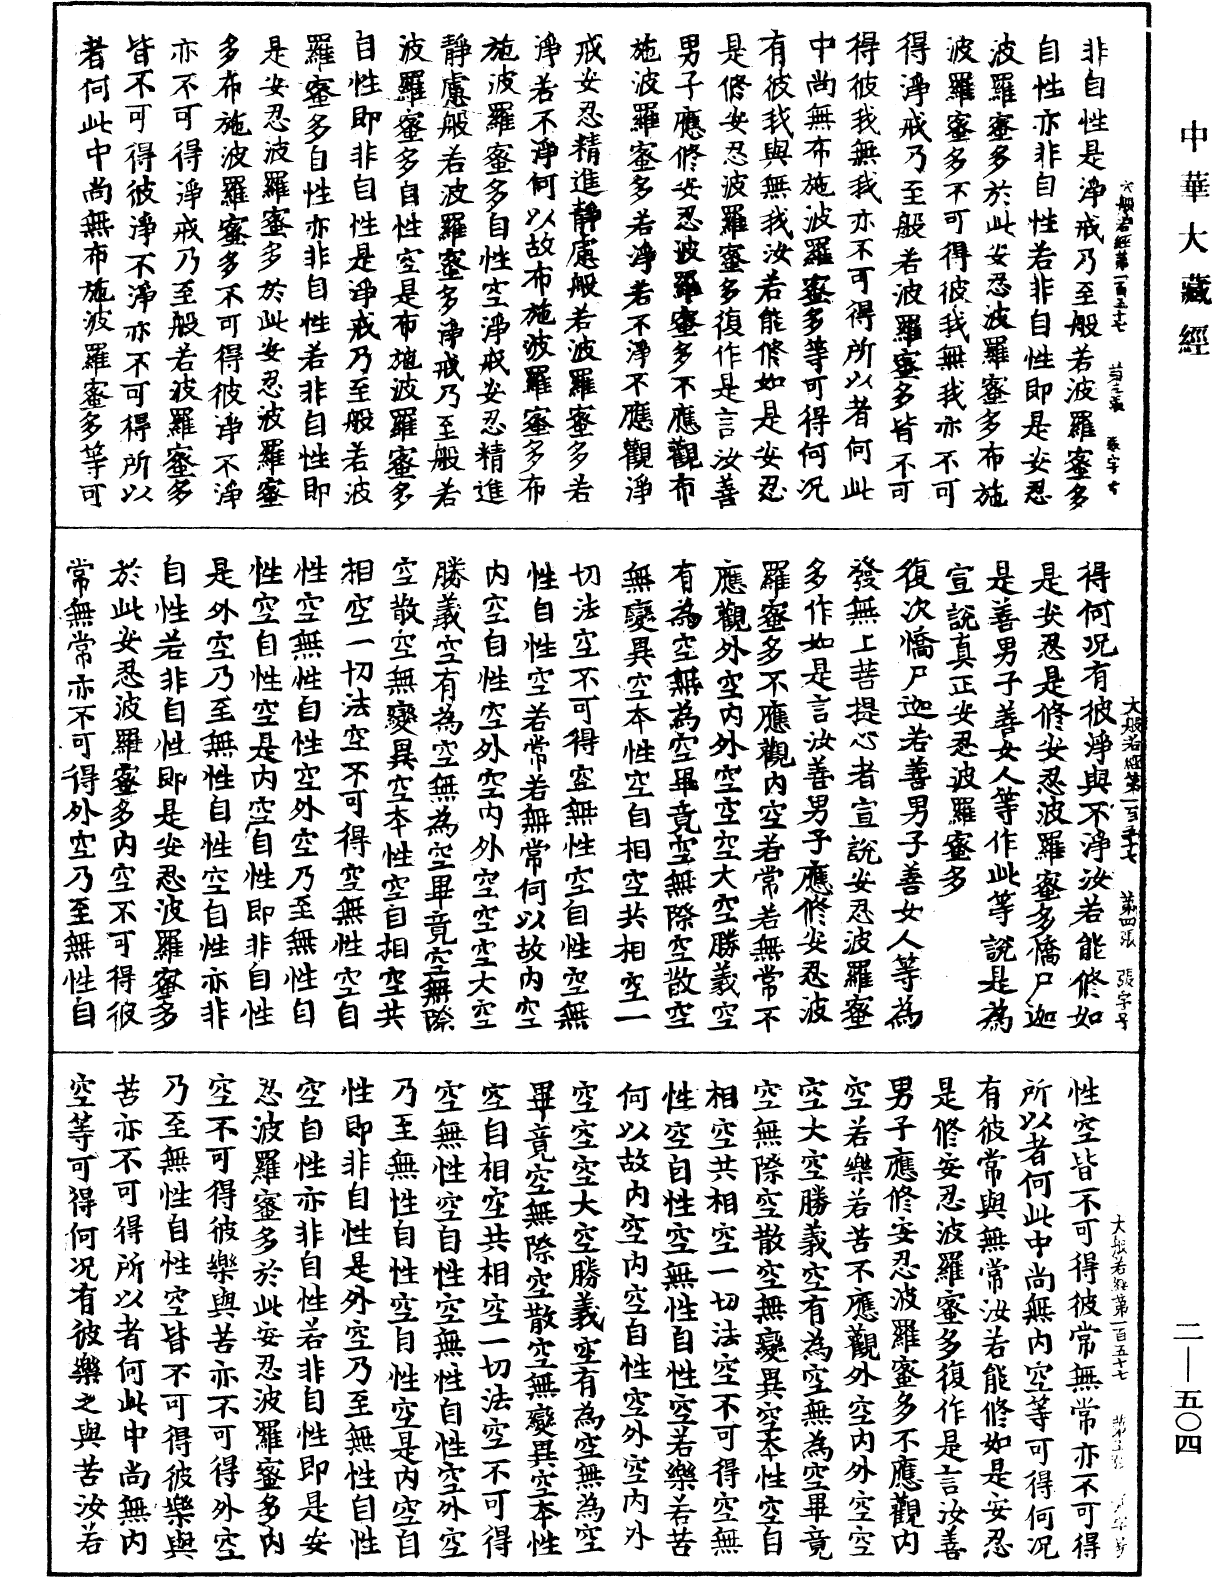 中華大藏經
非自性是淨戒乃至般若波羅蜜多
自性亦非自性若非自性即是安忍
波羅蜜多於此安忍波羅蜜多布施
波羅蜜多不可得彼我無我亦不可
得淨戒乃至般若波羅蜜多皆不可
得彼我無我亦不可得所以者何此
中尚無布施波羅蜜多等可得何況
有彼我與無我汝若能修如是安忍
是修安忍波羅蜜多復作是言汝善
男子應修安忍波羅蜜多不應觀布
施波羅蜜多若淨若不淨不應觀淨
戒安忍精進靜慮般若波羅蜜多若
淨若不淨何以故布施波羅蜜多布
施波羅蜜多自性空淨戒安忍精進
靜慮般若波羅蜜多淨戒乃至般若
波羅蜜多自性空是布施波羅蜜多
自性即非自性是淨戒乃至般若波
羅蜜多自性亦非自性若非自性即
是安忍波羅蜜多於此安忍波羅蜜
多布施波羅蜜多不可得彼淨不淨
亦不可得淨戒乃至般若波羅蜜多
皆不可得彼淨不淨亦不可得所以
者何此中尚無布施波羅蜜多等可
大般若經第一百五十七 第四張 張字号
得何況有彼淨與不淨汝若能修如
是安忍是修安忍波羅蜜多憍尸迦
是善男子善女人等作此等說是為
宣說真正安忍波羅蜜多
復次憍尸迦若善男子善女人等為
發無上菩提心者宣說安忍波羅蜜
多作如是言汝善男子應修安忍波
羅蜜多不應觀內空若常若無常不
應觀外空內外空空空大空勝義空
有為空無為空畢竟空無際空散空
無變異空本性空自相空共相空一
切法空不可得空無性空自性空無
性自性空若常若無常何以故內空
內空自性空外空內外空空空大空
勝義空有為空無為空畢竟空無際
空散空無變異空本性空自相空共
相空一切法空不可得空無性空自
性空無性自性空外空乃至無性自
性空自性空是內空自性即非自性
是外空乃至無性自性空自性亦非
自性若非自性即是安忍波羅蜜多
於此安忍波羅蜜多內空不可得彼
常無常亦不可得外空乃至無性自
大般若經第一百五十七
性空皆不可得彼常無常亦不可得
所以者何此中尚無內空等可得何況
有彼常與無常汝若能修如是安忍
是修安忍波羅蜜多復作是言汝善
男子應修安忍波羅蜜多不應觀內
空若樂若苦不應觀外空內外空空
空大空勝義空有為空無為空畢竟
空無際空散空無變異空本性空自
相空共相空一切法空不可得空無
性空自性空無性自性空若樂若苦
何以故內空內空自性空外空內外
空空空大空勝義空有為空無為空
畢竟空無際空散空無變異空本性
空自相空共相空一切法空不可得
空無性空自性空無性自性空外空
乃至無性自性空自性空是內空自
性即非自性是外空乃至無性自性
空自性亦非自性若非自性即是安
忍波羅蜜多於此安忍波羅蜜多內
空不可得彼樂與苦亦不可得外空
乃至無性自性空皆不可得彼樂與
苦亦不可得所以者何此中尚無內
空等可得何況有彼樂之與苦汝若
二—五〇四